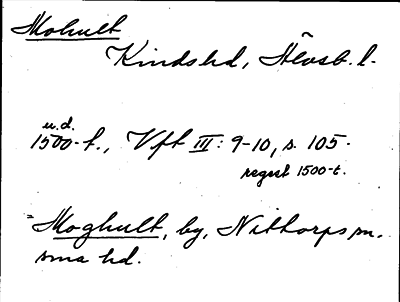 Mohult
Kindshd, Älvsb. l.
u.d.
1500-t., Vft III: 9-10, s. 105.
regest 1500-t.
Moghult, by, Nittorps sn.
sma hd.